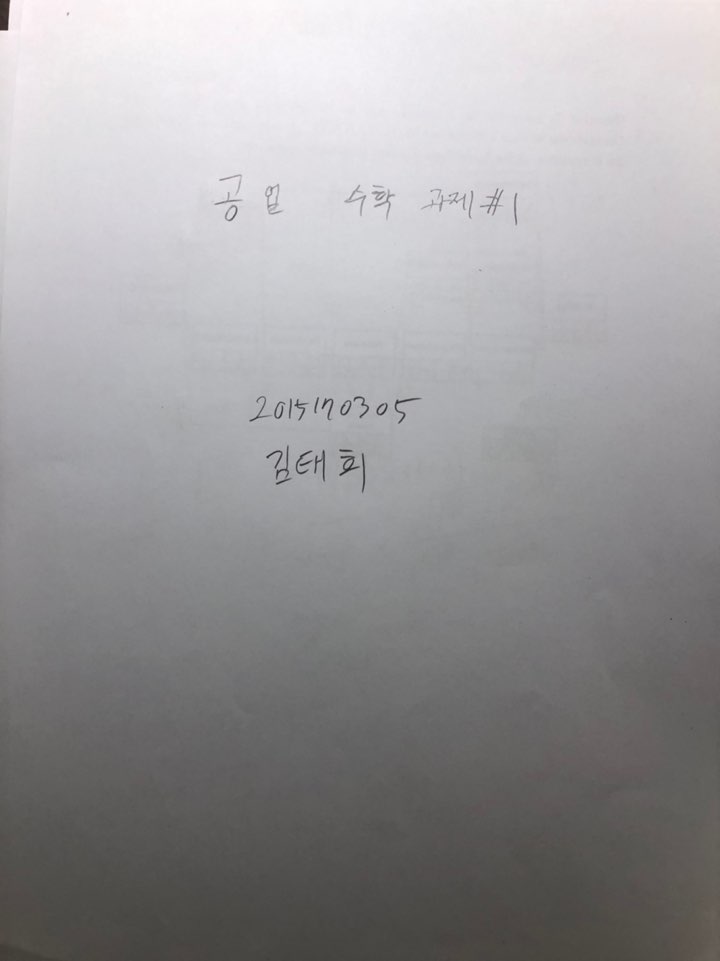 공업 수학 과제#1
2015170305
김태희